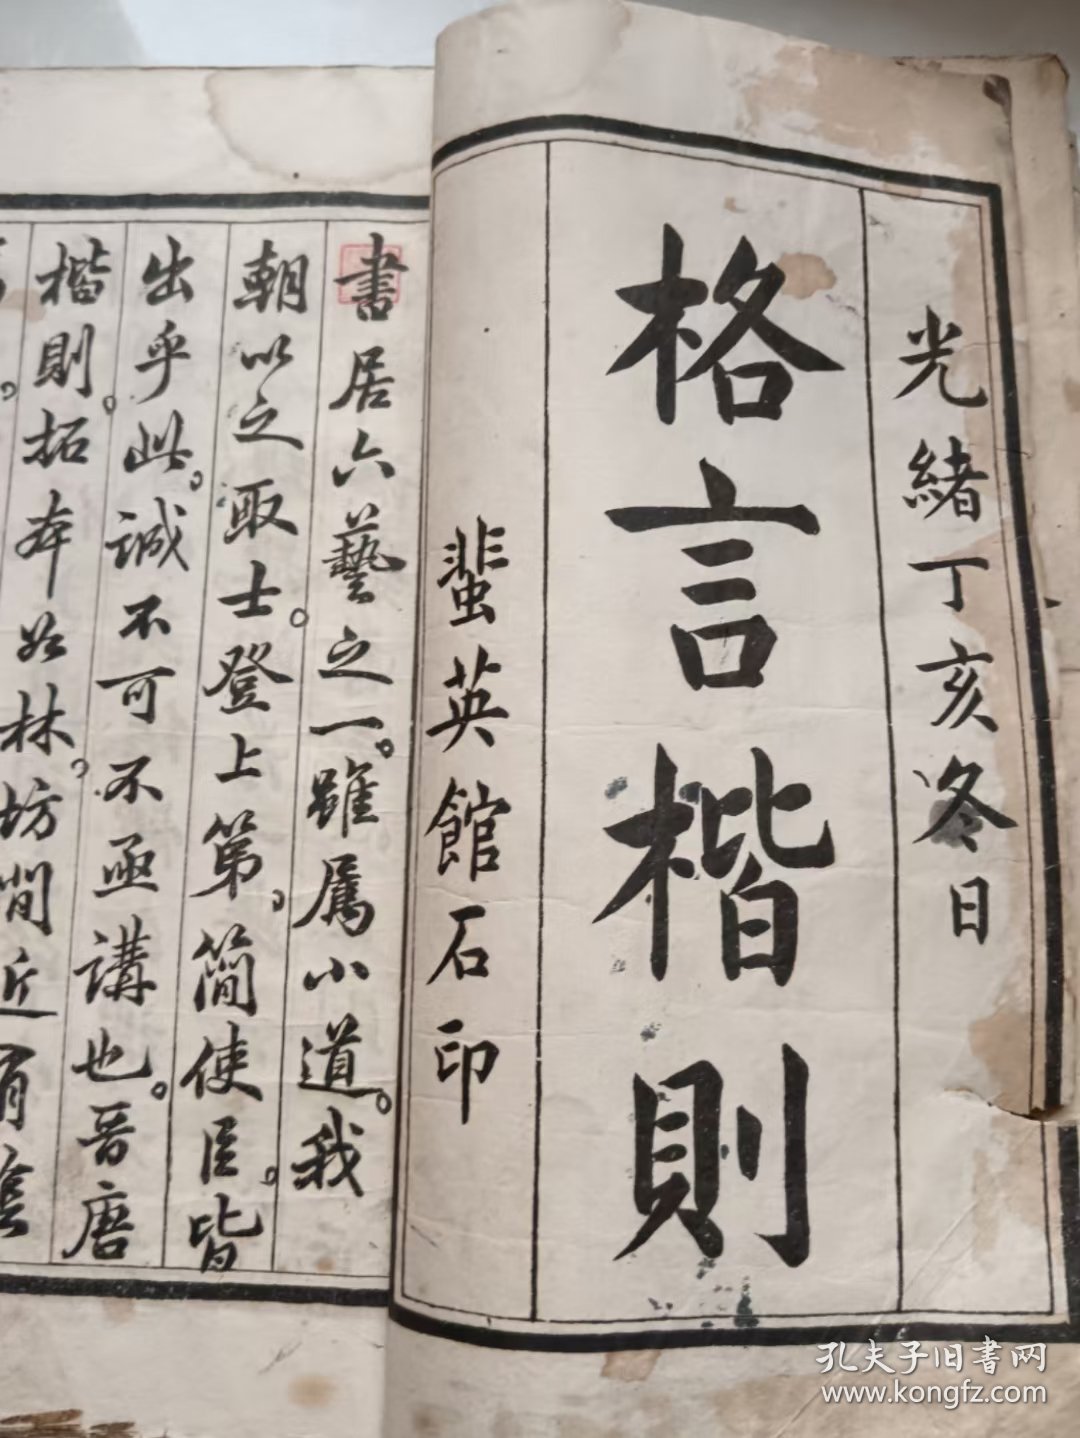 光緒丁亥冬日
格言楷則
蜚英館石印
書居六藝之一。雖屬小道。我
朝以之取士。登上第。簡使臣。皆
出乎此。誠不可不亟講也。晉唐
楷則。拓本如林。坊間近有
孔夫子旧書网
www.kongfz.com